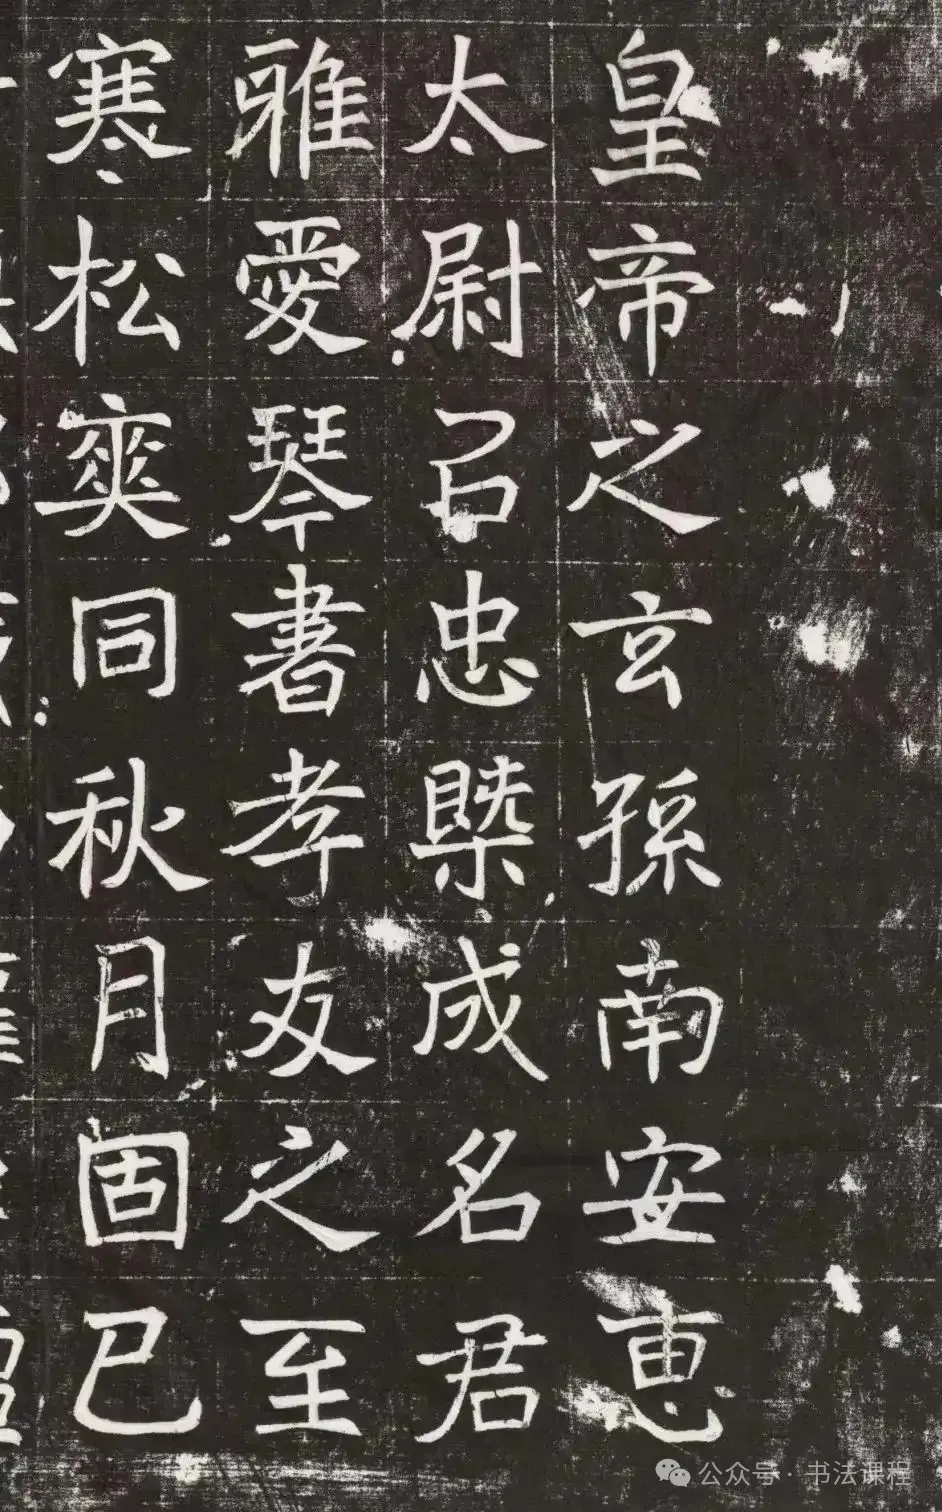 皇帝之玄孫南安惠
太尉㠯忠槩成名君
雅愛琴書孝友之至
寒松爽同秋月固已
公众号 · 书法课程